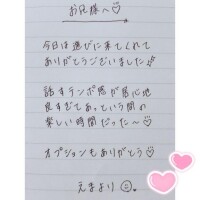 お兄様へ♡
今日は遊びに来てくれて
ありがとうございました
話すテンポ感が居心地
良すぎてあっという間の
楽しい時間だった〜
オプションもありがとう
えまより